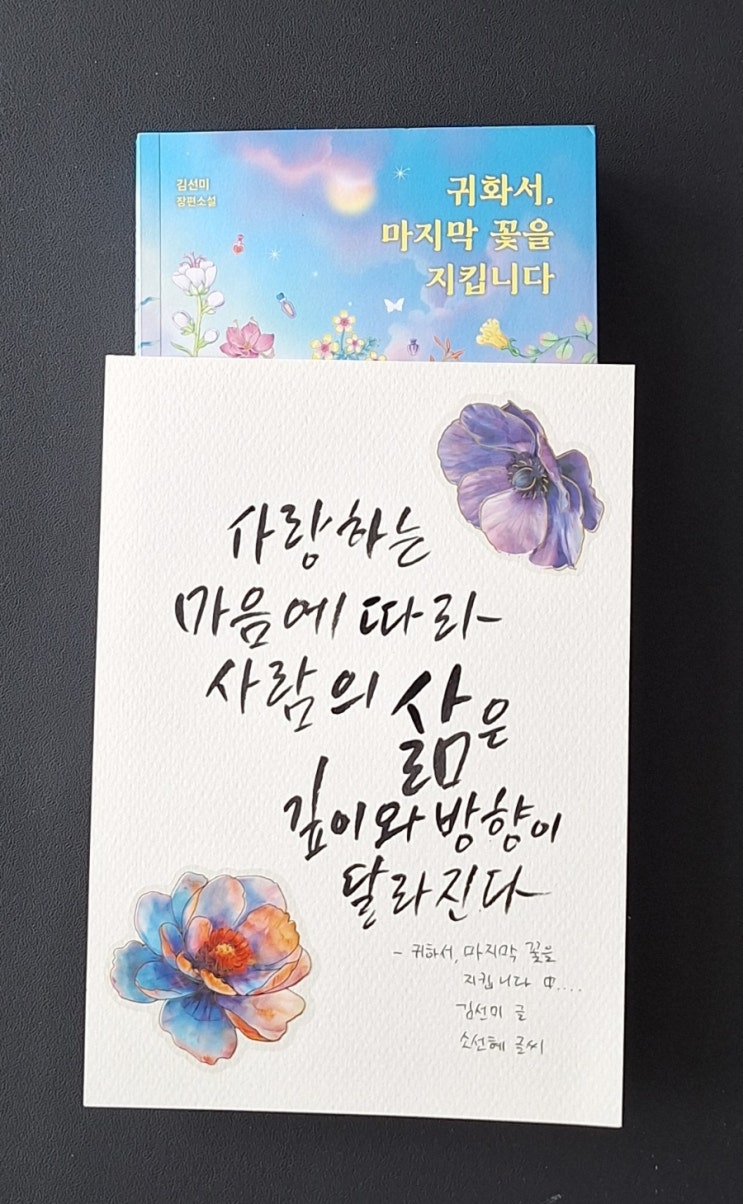 김선미
장편소설
귀화서,
마지막 꽃을
지킵니다
사랑하는
마음에 따라
사람의 삶은
깊이와 방향이
달라진다
- 귀화서, 마지막 꽃을
지킵니다 中....
김선미 글
소선혜 글씨